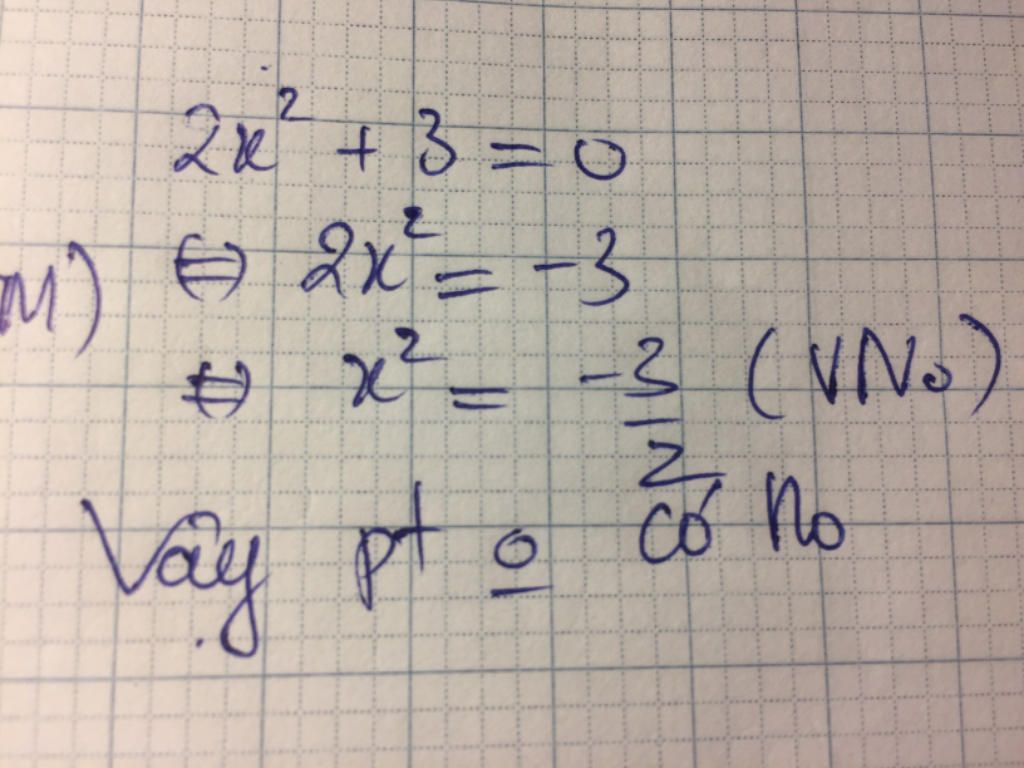 2x² + 3 = 0
M) ⇔ 2x² = -3
⇔ x² = -3/2 (VNo)
Vậy pt o có No